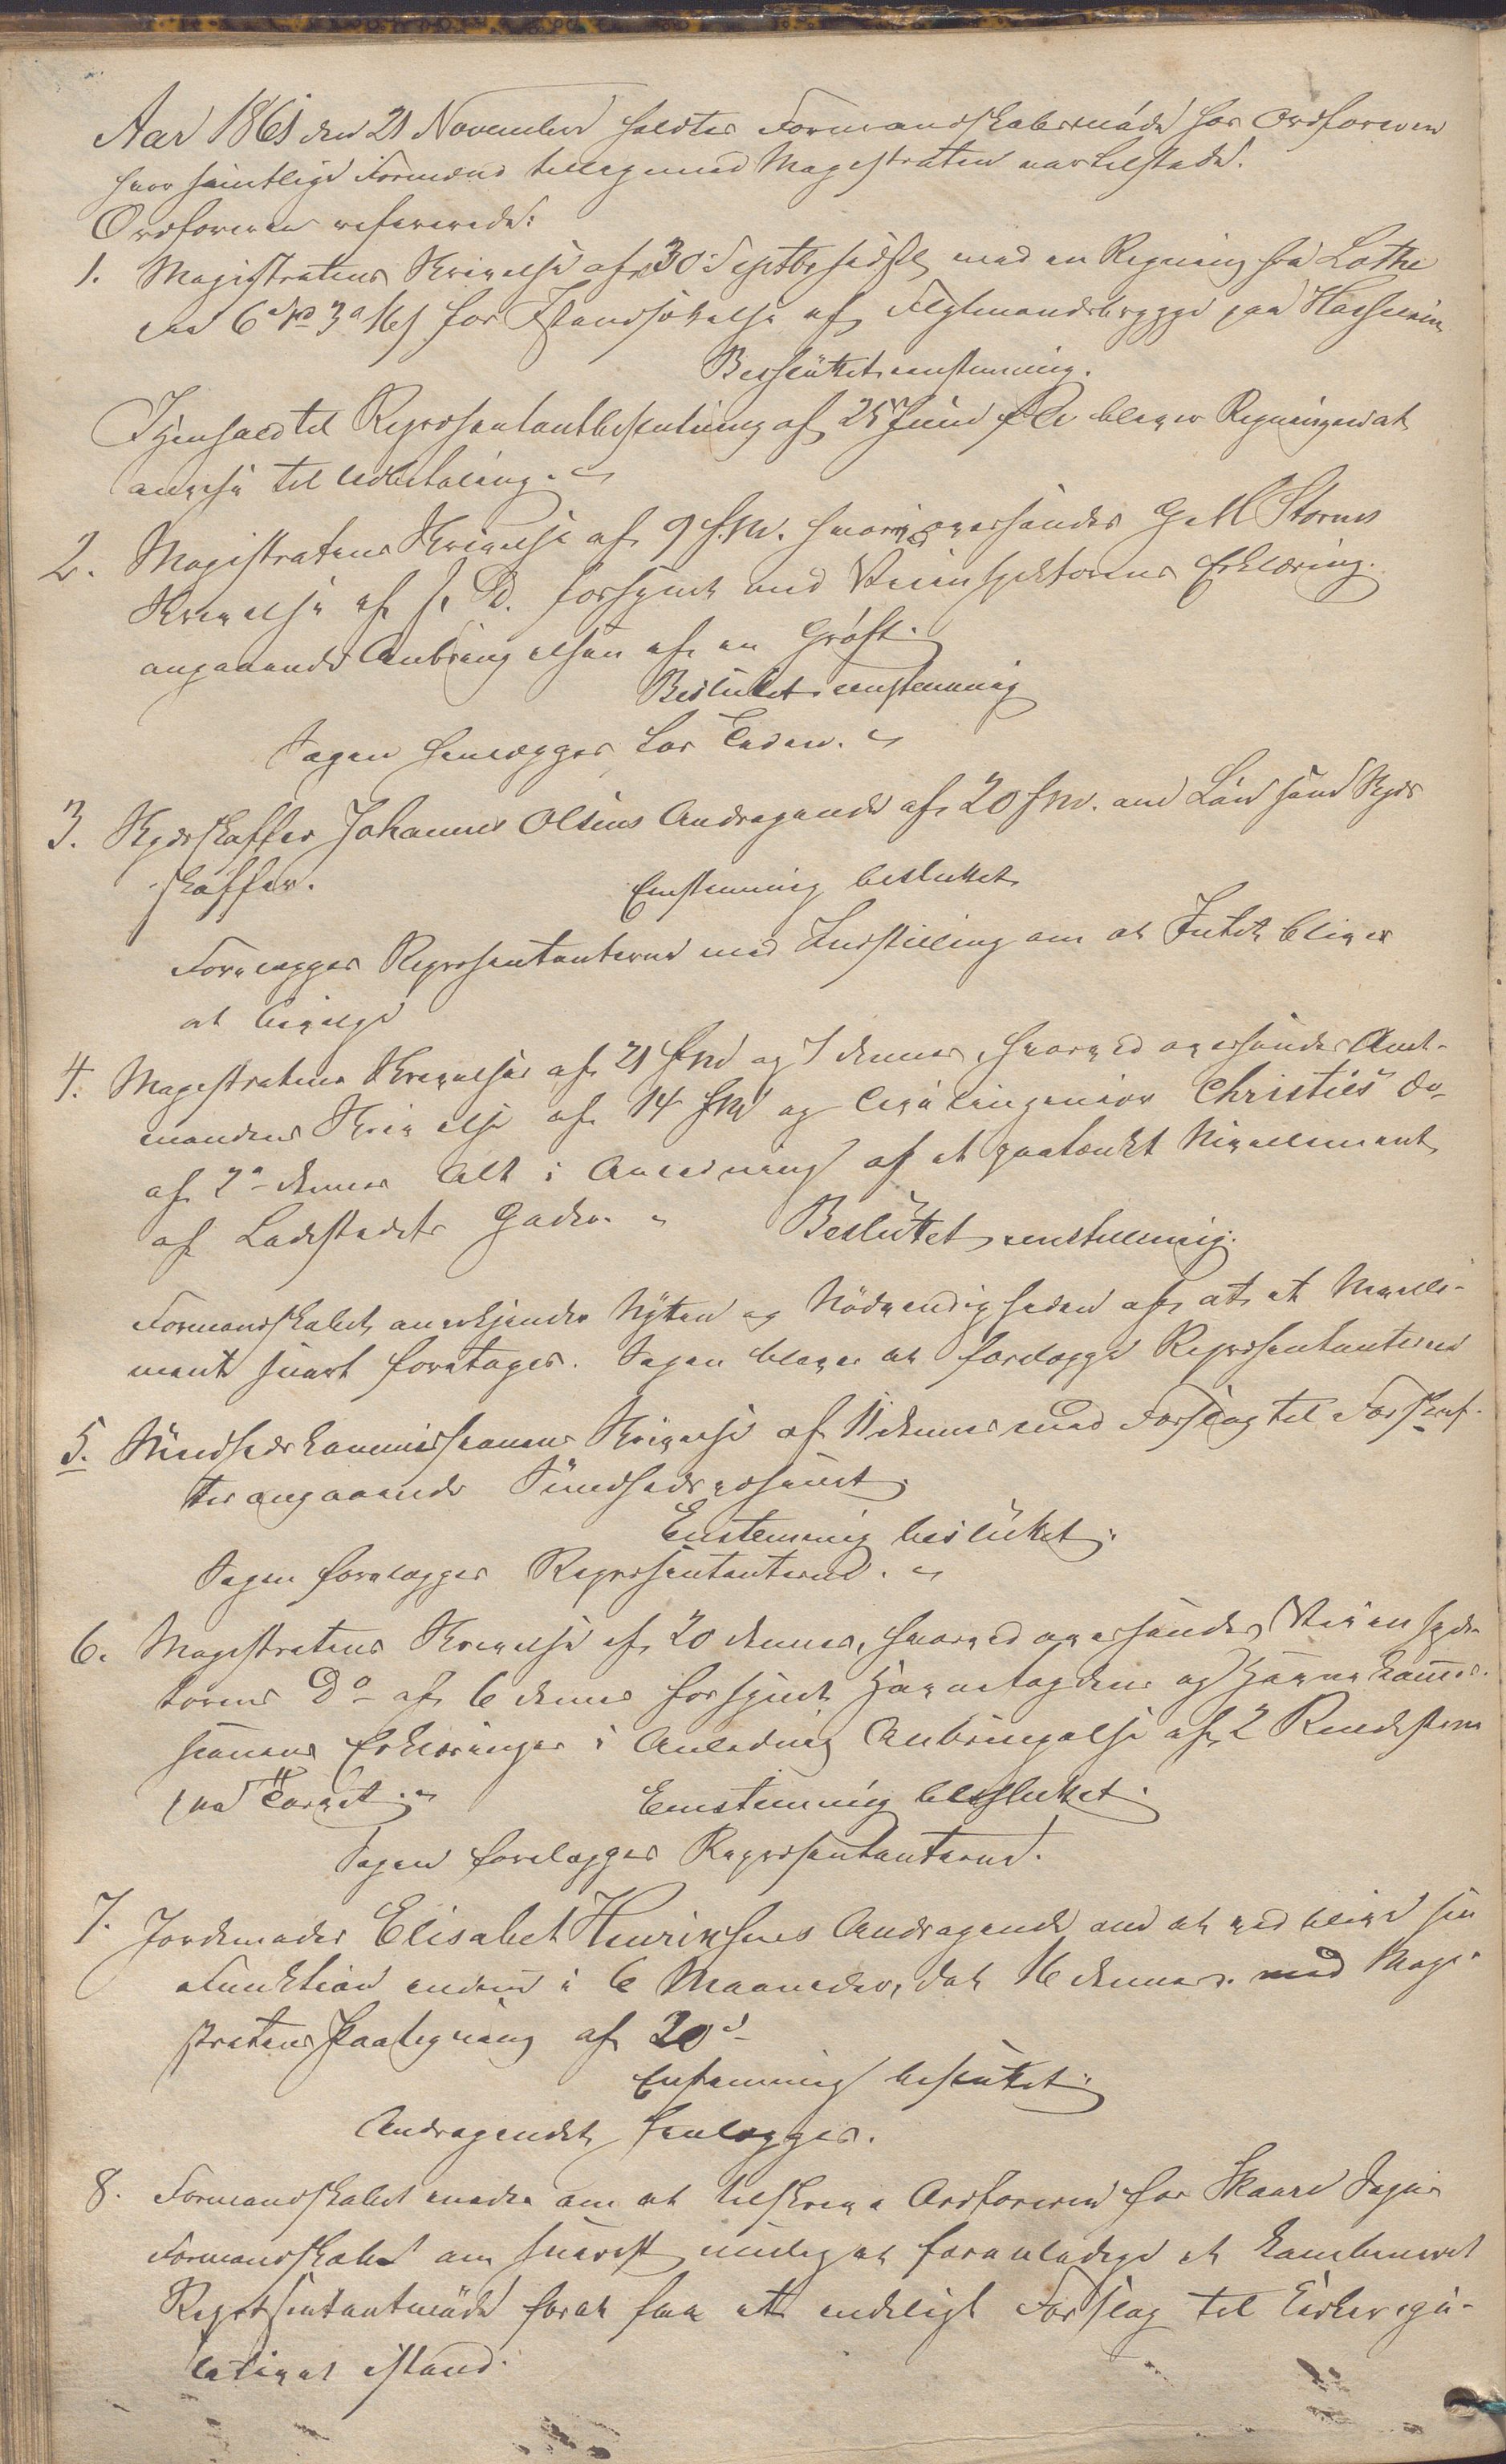 Aar 1861 den 21 November holdtes Formandskabsmøde hos Ordføreren
hvor samtlige Formænd tilligemed Magistraten var tilstede.
Ordføreren refererede:
1. Magistratens Skrivelse af 30 Septbr sidstl med en Regning fra Lothe
for Istandsættelse af Flytmandsbrygge paa Hasseløen
Besluttet eenstemmig.
I Henhold til Repræsentantbeslutning af 25 Juni bliver Regningen at
anvise til Udbetaling.
2. Magistratens Skrivelse af 9 f. M. hvorved oversendes G M Storms
Skrivelse af s. D. forsynet med Veiinspektorens Erklæring
angaaende Anbringelsen af en Grøft.
Besluttet eenstemmig
Sagen henlægges for Tiden.
3. Skydsskaffer Johannes Olsens Andragende af 20 f. M. om Løn som Skyds
skaffer.
Eenstemmig besluttet
Forelægges Repræsentanterne med Indstilling om at Intet bliver
at bevilge
4. Magistratens Skrivelser af 21 f. M. og 7 dennes, hvorved oversendes Amt-
mandens Skrivelse af 14 f. M. og Civilingeniør Christies do
af 2 dennes Alt i Anledning af et paatænkt Nivellement
af Ladestedets Gader. Besluttet eenstemmig.
Formandskabet anerkjender Nytten og Nødvendigheden af at et Nivelle-
ment snart foretages. Sagen bliver at forelægge Repræsentanterne
5. Sundhedskommissionens Skrivelse af 11 dennes med Forslag til Forskrif-
ter angaaende Sundhedsvæsenet.
Eenstemmig besluttet.
Sagen forelægges Repræsentanterne.
6. Magistratens Skrivelse af 20 dennes, hvorved oversendes Veiinspek-
torens Do af 6 dennes forsynet Havnefogdens og Havnekommis-
sionens Erklæringer i Anledning Anbringelse af 2 Rendestene
paa Torvet. Eenstemmig besluttet.
Sagen forelægges Repræsentanterne.
7. Jordemoder Elisabet Henriksens Andragende om at vedblive sin
Funktion endnu i 6 Maaneder, dat 16 dennes med Magi-
stratens Paategning af 20de
Eenstemmig besluttet.
Andragendet henlægges.
8. Formandskabet enedes om at tilskrive Ordføreren for Skaare Sogns
Formandskab om snarest muligt at foranledige et kombineret
Repræsentantmøde forat faa et endeligt Forslag til
istand.